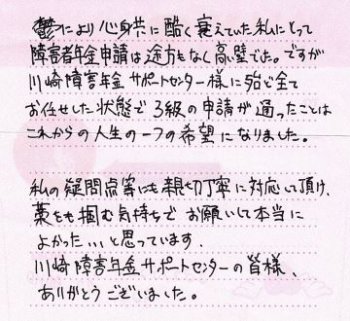 鬱により心身共に酷く衰えていた私にとって
障害者年金申請は途方もなく高い壁でした。ですが
川崎障害年金サポートセンター様に殆ど全て
お任せした状態で3級の申請が通ったことは
これからの人生の一つの希望になりました。
私の疑問点等にも親切丁寧に対応して頂け、
藁をも掴む気持ちでお願いして本当に
よかった…と思っています。
川崎障害年金サポートセンターの皆様、
ありがとうございました。